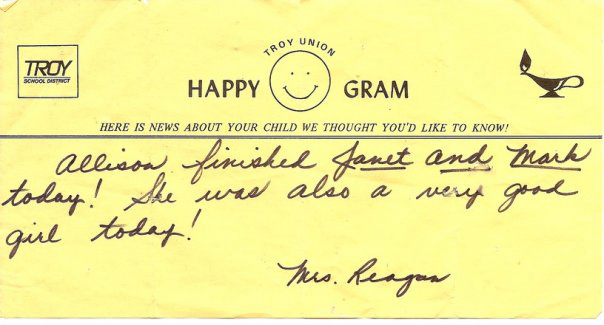 TROY
SCHOOL DISTRICT
TROY UNION
HAPPY GRAM
HERE IS NEWS ABOUT YOUR CHILD WE THOUGHT YOU'D LIKE TO KNOW!
Allison finished Janet and Mark
today! She was also a very good
girl today!
Mrs. Reagan